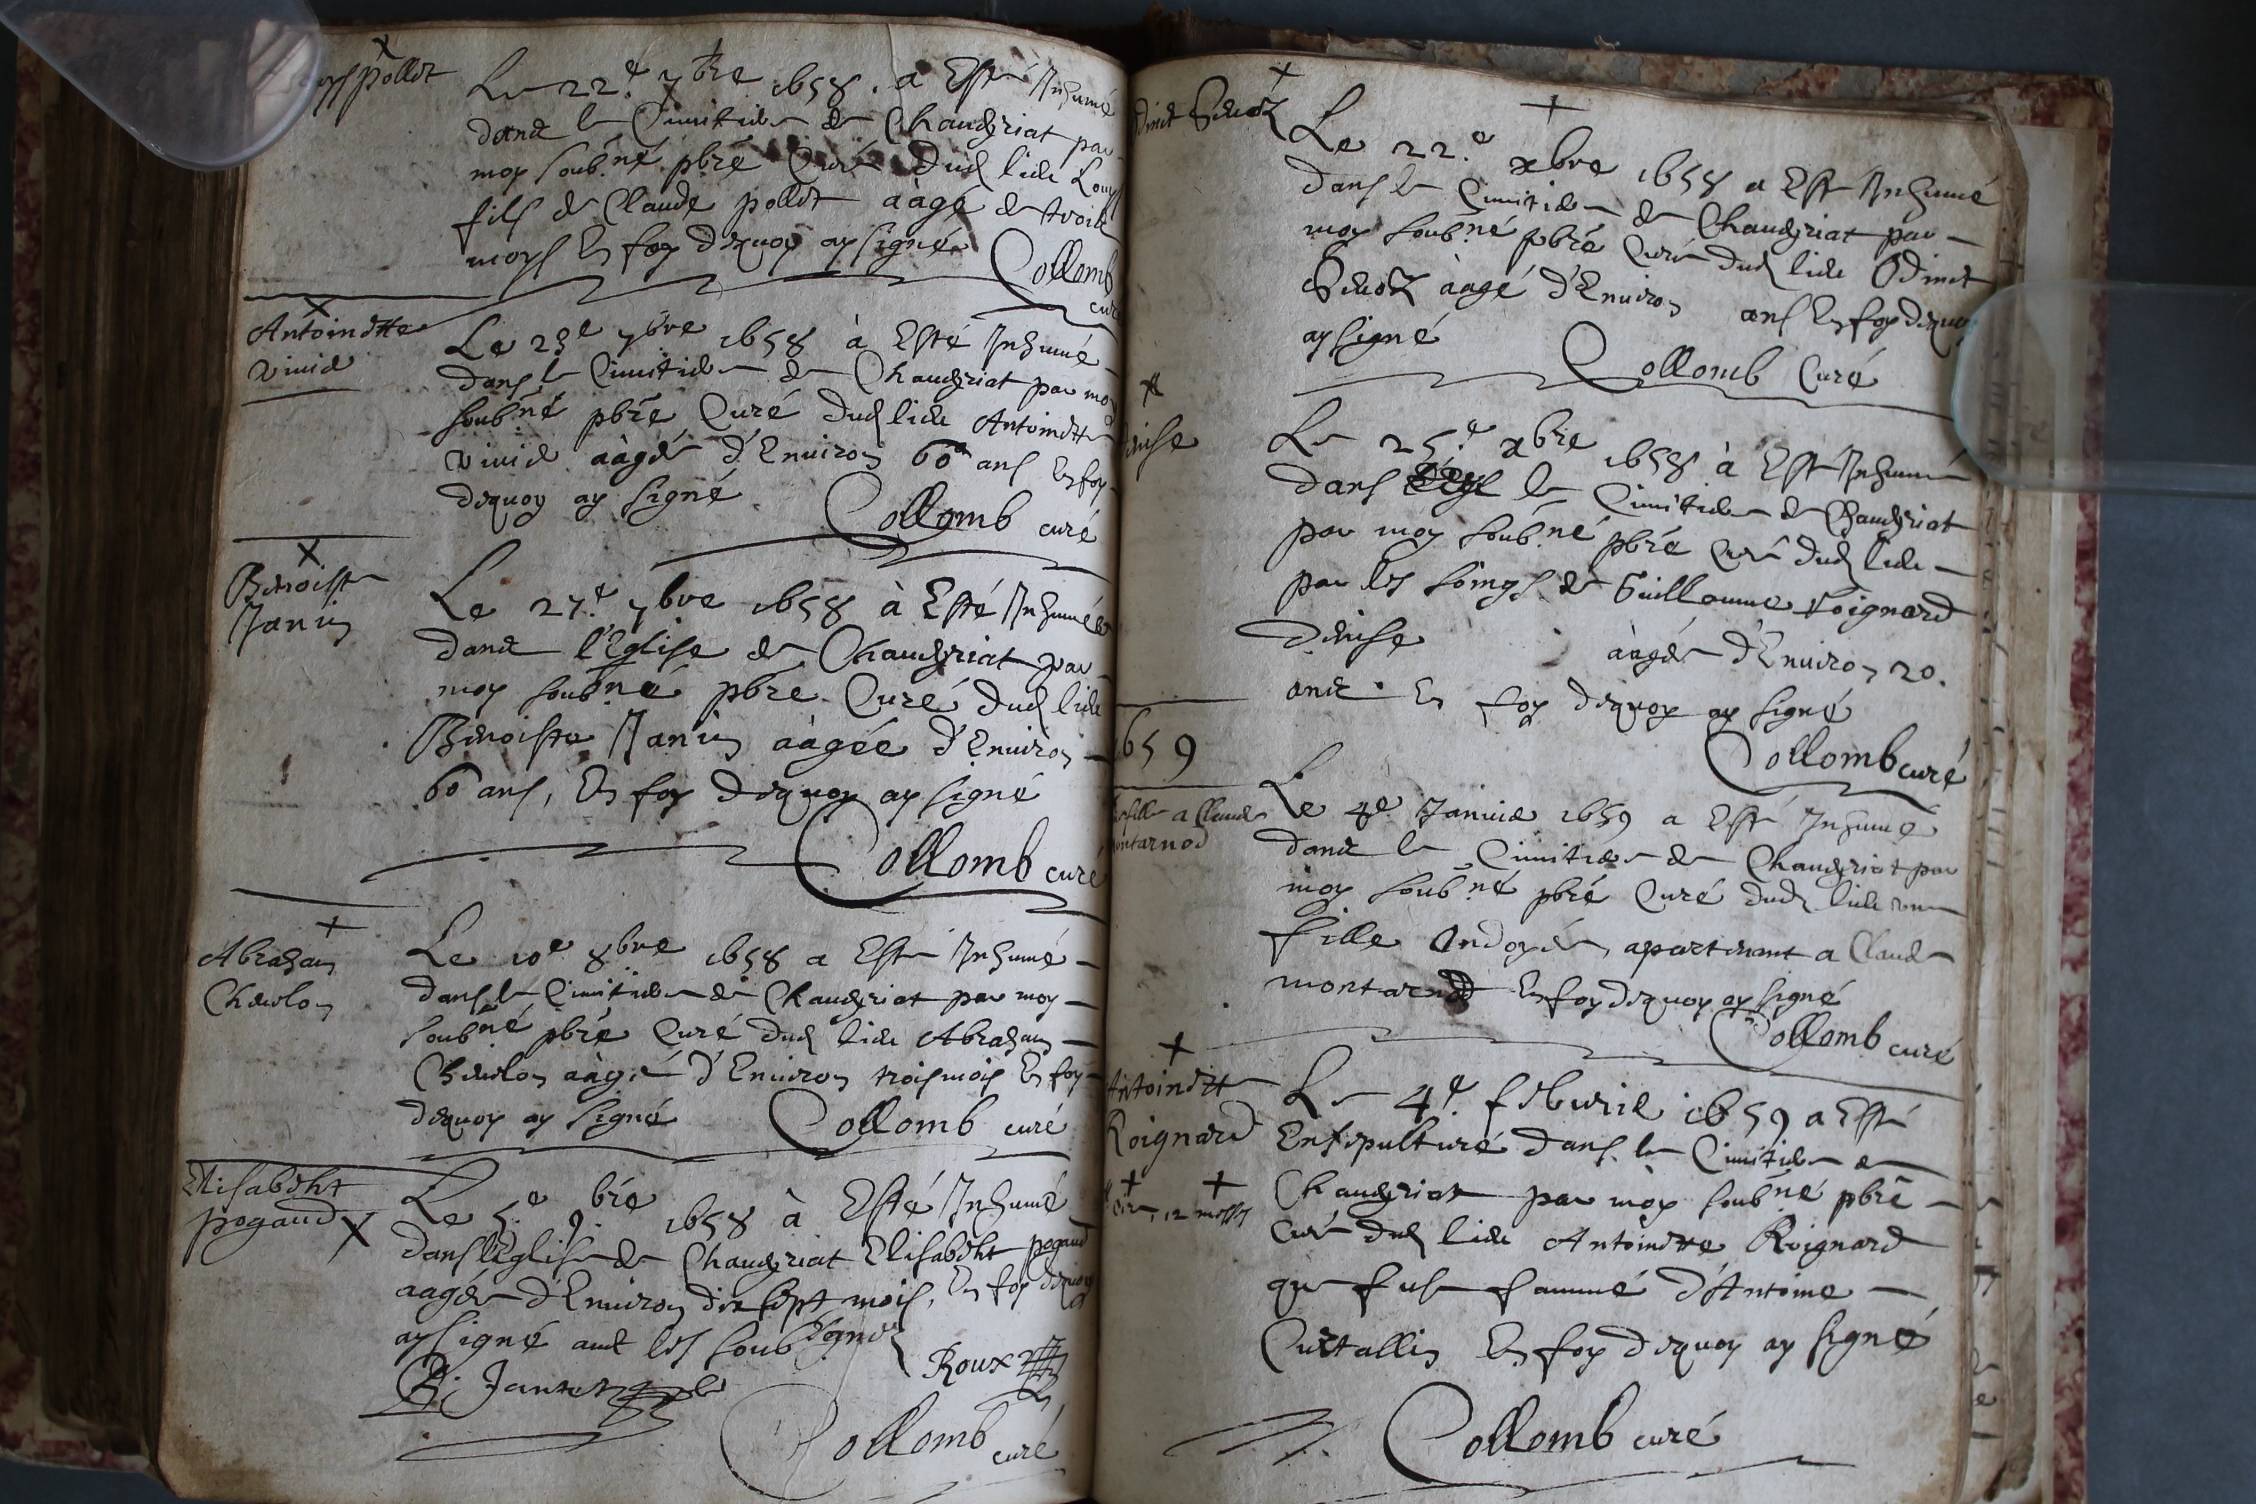 pollet
Le 22.e 7bre 1658. a Esté Inhumé
dans le Cimitiere de Chaveyriat par
moy soub.né pbre Curé dud lieu Louys
fils de Claude pollet aàgé de trois
moys En foy dequoy ay signé
Collomb
curé
Antoinette
vivie
Le 23e 7bre 1658 à Esté Inhumé
dans le Cimitiere de Chaveyriat par moy
soub.né pbre Curé dud lieu Antoinette
vivie aàgée d'Environ 60 ans En foy
dequoy ay signé
Collomb curé
Benoiste
Janin
Le 27.e 7bre 1658 à Esté Inhumée
dans l'Eglise de Chaveyriat par
moy soub.né pbre Curé dud lieu
Benoiste Janin aàgée d'Environ
60 ans, En foy dequoy ay signé
Collomb curé
Abraham
Chevelon
Le 10e 8bre 1658 a Esté Inhumé
dans le Cimitiere de Chaveyriat par moy
soub.né pbre Curé dud lieu Abraham
Chevelon aàgé d'Environ trois mois En foy
dequoy ay signé Collomb curé
Elisabeht
pogaud
Le 5.e 9.bre 1658 à Esté Inhumé
dans l'Eglise de Chaveyriat Elisabeht pogaud
aagée d'Environ dix sept mois, En foy dequoy
ay signé avec les soubsignez
Roux
Jantet
Collomb
curé
Odinet
Le 22.e xbre 1658 a Esté Inhumé
dans le Cimitiere de Chaveyriat par
moy soub.né pbre Curé dud lieu Odinet
aàgé d'Environ ans En foy dequoy
ay signé
Collomb Curé
denise
Le 25.e xbre 1658 à Esté Inhumé
dans le Cimitiere de Chaveyriat
par moy soub.né pbre Curé dud lieu
par les soings de Guillaume Roignard
denise aàgée d'Environ 20.
ans. En foy dequoy ay signé
Collomb curé
1659
fille a Claude
montarnod
Le 4e Janvie 1659 a Esté Inhumé
dans le Cimitiere de Chaveyriat par
moy soub.né pbre Curé dud lieu une
fille Ondoyée, apartenant a Claude
montarnod En foy dequoy ay signé
Collomb curé
Antoinette
Roignard
12 messes
Le 4e. febvrie 1659 a Esté
Ensepulturé dans le Cimitiere de
Chaveyriat par moy soub.né pbre
curé dud lieu Antoinette Roignard
que fust famme d'Antoine
Curtallin En foy dequoy ay signé
Collomb curé